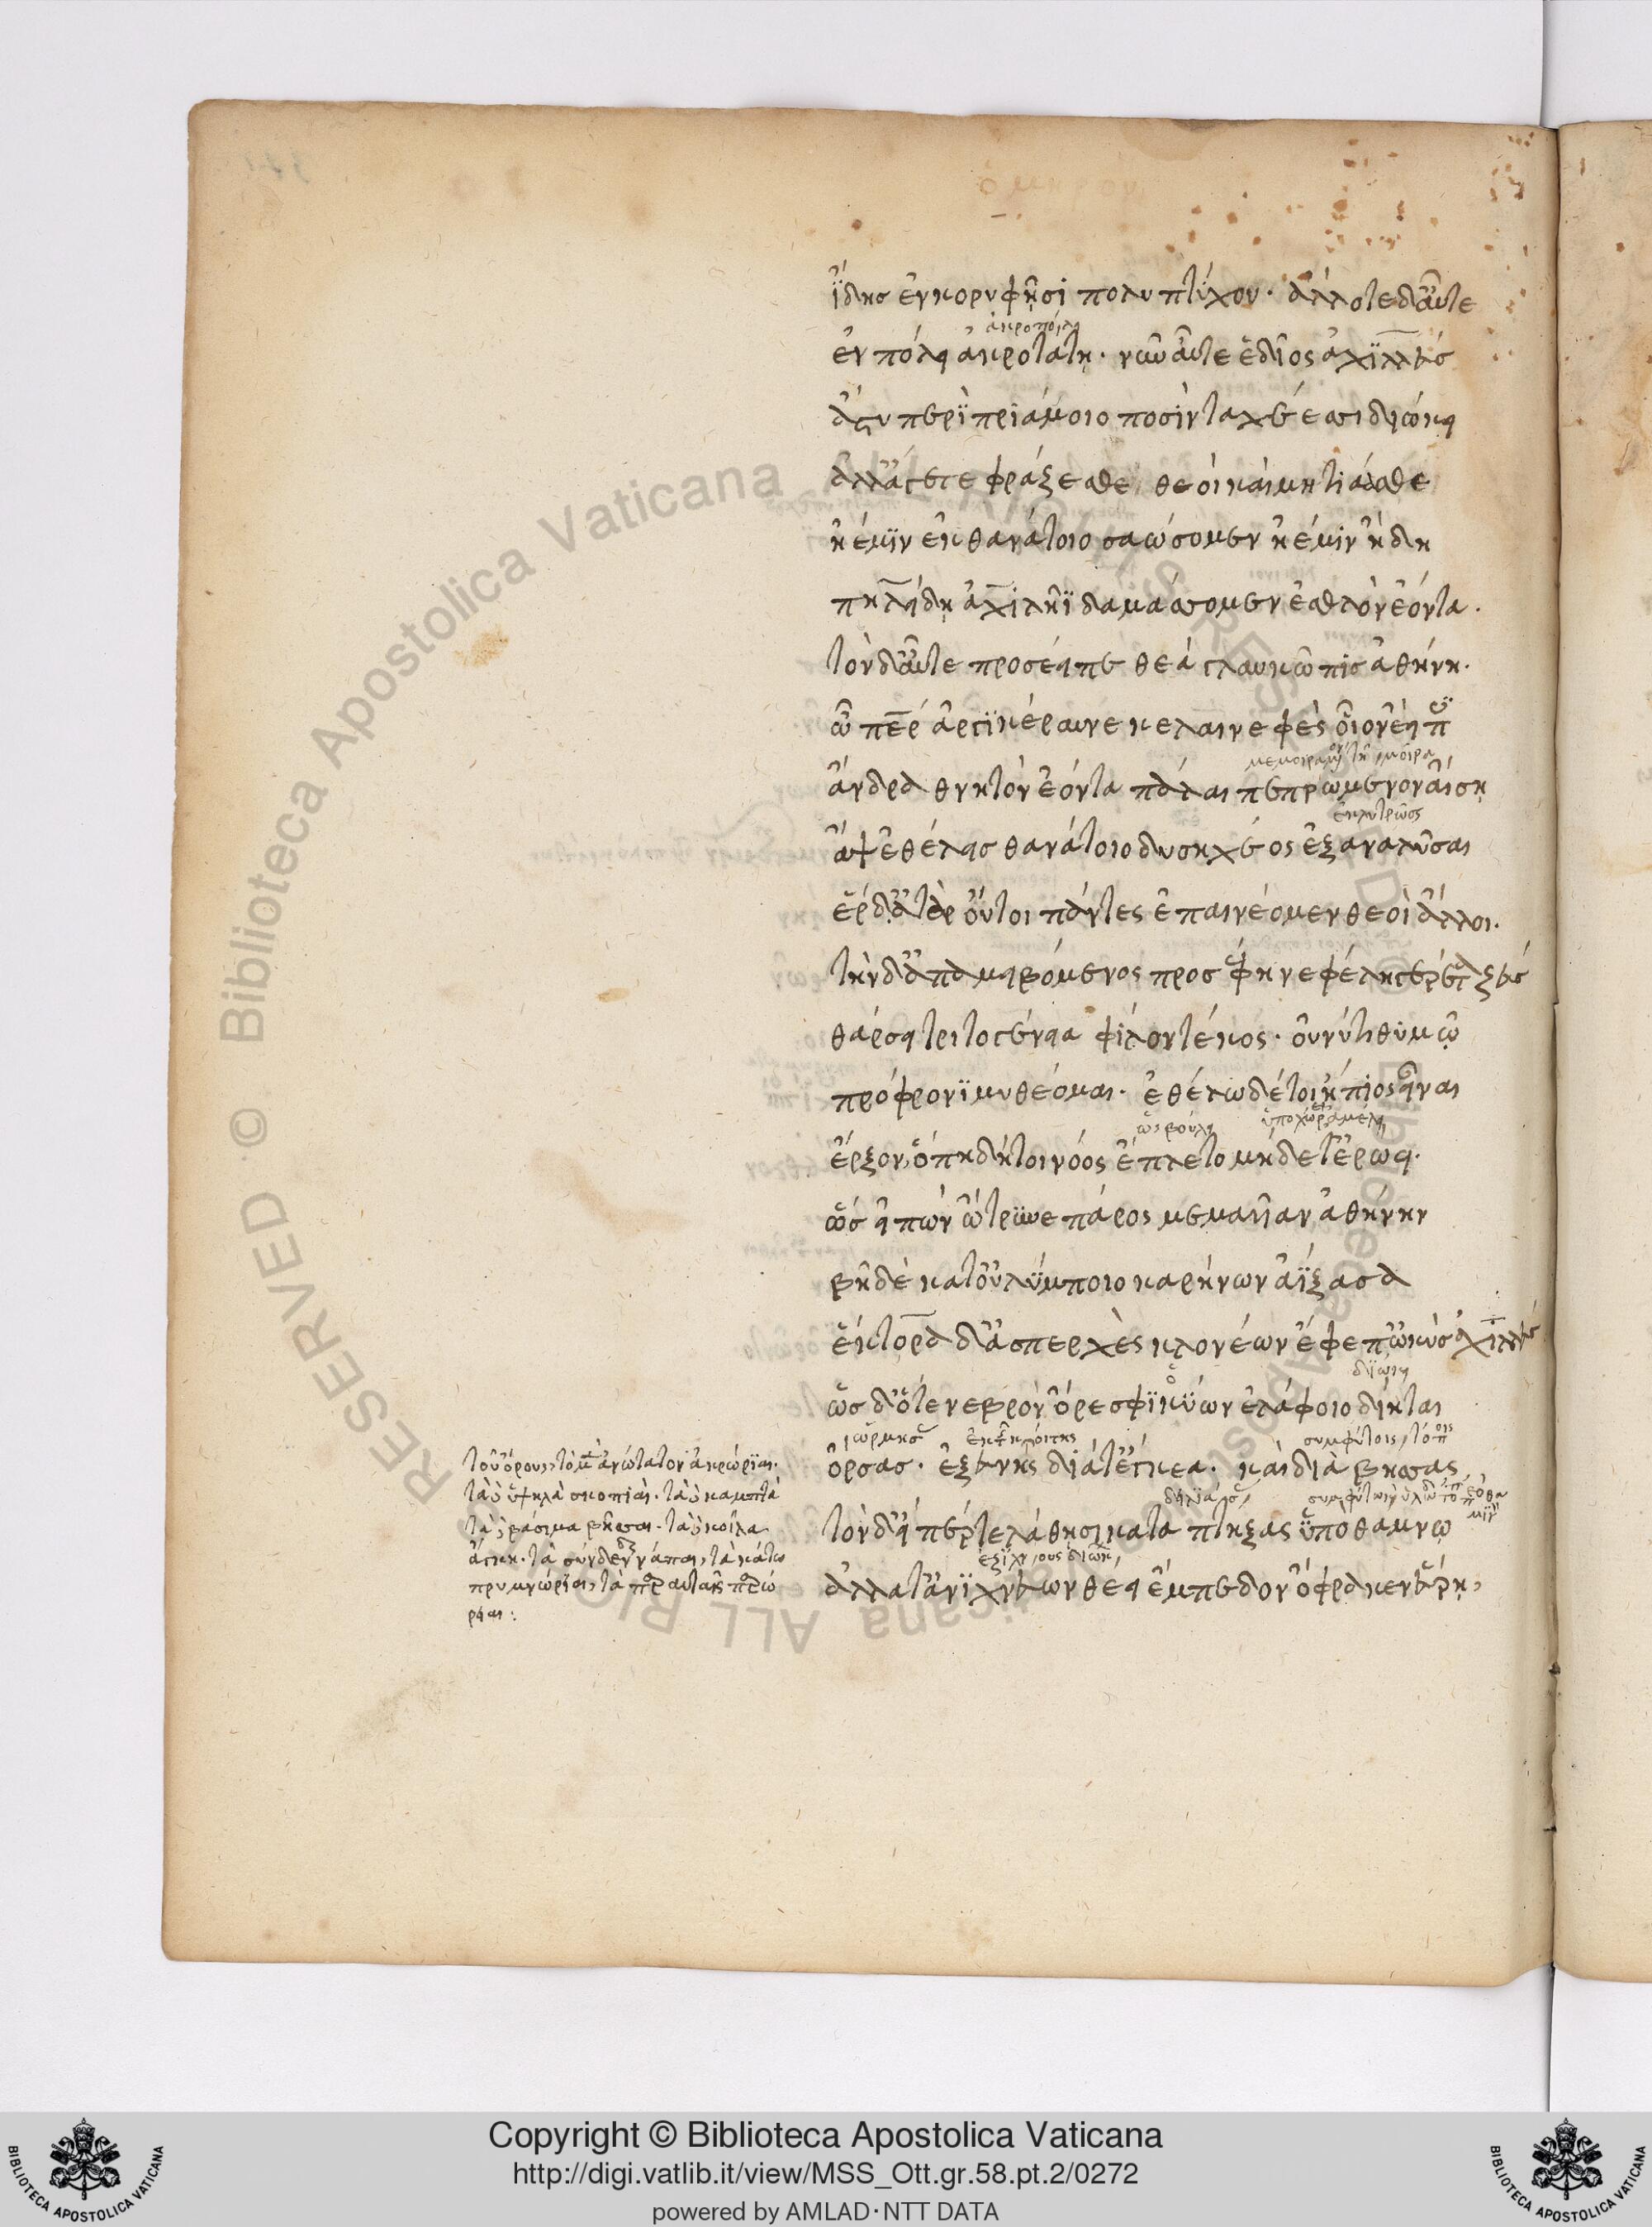 ἴδης ἐν κορυφῇσι πολυπτύχου· ἄλλοτε δ' αὖτε
ἀκροπόλει
ἐν πόλει ἀκροτάτῃ· νῦν αὖτε ἑ δῖος ἀχιλλεὺς
ἄστυ περὶ πριάμοιο ποσὶν ταχέεσσι διώκει
ἀλλ' ἄγετε φράζεσθε θεοὶ καὶ μητιάασθε
ἠέ μιν ἐκ θανάτοιο σαώσομεν ἠέ μιν ἤδη
πηλείδῃ ἀχιλῆϊ δαμάσσομεν ἐσθλὸν ἐόντα.
τὸν δ' αὖτε προσέειπε θεὰ γλαυκῶπις ἀθήνη.
ὦ πάτερ ἀργικέραυνε κελαινεφὲς οἷον ἔειπες
μεμοιραμένον τῇ μοίρᾳ
ἄνδρα θνητὸν ἐόντα πάλαι πεπρωμένον αἴσῃ
ἂψ ἐθέλεις θανάτοιο δυσηχέος ἐξαναλῦσαι
ἔρδ' ἀτὰρ οὔτοι πάντες ἐπαινέομεν θεοὶ ἄλλοι.
τὴν δ' ἀπαμειβόμενος προσέφη νεφεληγερέτα ζεύς
θάρσει τριτογένεια φίλον τέκος· οὔ νύ τι θυμῷ
πρόφρονι μυθέομαι· ἐθέλω δέ τοι ἤπιος εἶναι
ἔρξον ὅπη δή τοι νόος ἔπλετο μηδέ τ' ἐρώει.
ὣς εἰπὼν ὤτρυνε πάρος μεμαυῖαν ἀθήνην
βῆ δὲ κατ' οὐλύμποιο καρήνων ἀΐξασα
ἕκτορα δ' ἀσπερχὲς κλονέων ἔφεπ' ὠκὺς ἀχιλλεύς
διώκει
ὡς δ' ὅτε νεβρὸν ὄρεσφι κύων ἐλάφοιο δίηται
ὄρσας· ἐξ εὐνῆς διά τ' ἄγκεα· καὶ διὰ βήσσας
τὸν δ' εἴπέρ τε λάθησι καταπτήξας ὑπὸ θάμνῳ
ἀλλά τ' ἀνιχνεύων θέει ἔμπεδον ὄφρά κεν εὕρῃ,
τοῦ ὄρους, τὸ μὲν ἀνώτατον ἀκρώρειαι.
τὰ δὲ ὑψηλὰ σκοπιαί. τὰ δὲ καμπτὰ
τὰ δὲ βάσιμα βῆσσαι. τὰ δὲ κοῖλα
ἄγκη. τὰ σύνδενδρα νάπαι, τὰ κάτω
Copyright © Biblioteca Apostolica Vaticana
http://digi.vatlib.it/view/MSS_Ott.gr.58.pt.2/0272
powered by AMLAD·NTT DATA